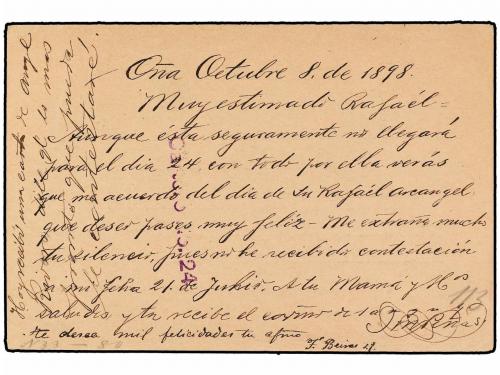 Oña Octubre 8. de 1898.
Muy estimado Rafaél=
Aunque ésta seguramente no llegará
para el dia 24, con todo por ella verás
que me acuerdo del dia de Sn Rafaél arcangel
que deseo pases muy feliz- Me extraña mucho
tu silencio, pues no he recibido contestación
a mi fcha 21 de Junio. A tu Mamá y Hos
saludes y tu recibe el cariño de
te desea mil felicidades tu afmo
Hoy recibí una carta de
dile que lo mas
pronto que pueda
le contestaré!
113